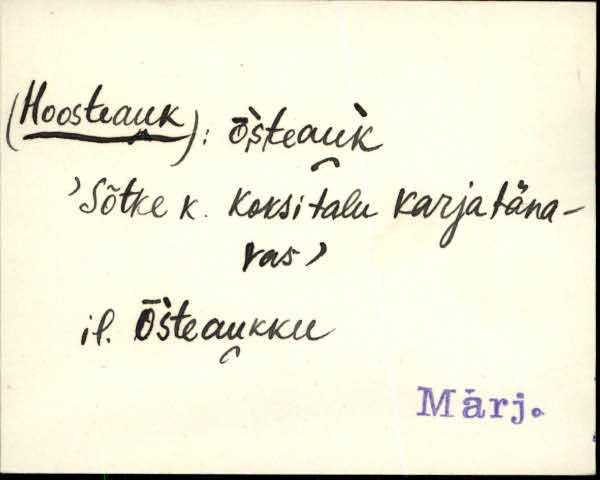 (Hoosteauk): ȭ̀šteau̯k̀
'Sõtke k. Koksi talu karjatäna-
vas'
il. Ȭ̀šteau̯kku
Märj.